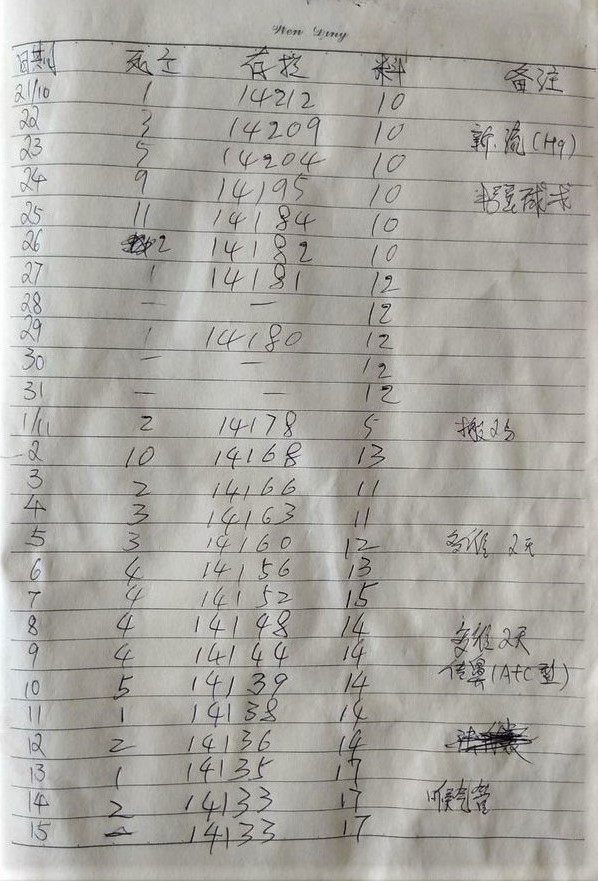 日期 死亡 存栏 料 备注
21/10 1 14212 10
22 3 14209 10 新.流(H9)
23 5 14204 10
24 9 14195 10
25 11 14184 10
26 2 14182 10
27 1 14181 12
28 — — 12
29 1 14180 12
30 — — 12
31 — — 12
1/11 2 14178 5
2 10 14168 13
3 2 14166 11
4 3 14163 11
5 3 14160 12 多维 2天
6 4 14156 13
7 4 14152 15
8 4 14148 14 多维2天
9 4 14144 14 传鼻(A+C型)
10 5 14139 14
11 1 14138 14
12 2 14136 14
13 1 14135 17
14 2 14133 17 喉气管
15 — 14133 17